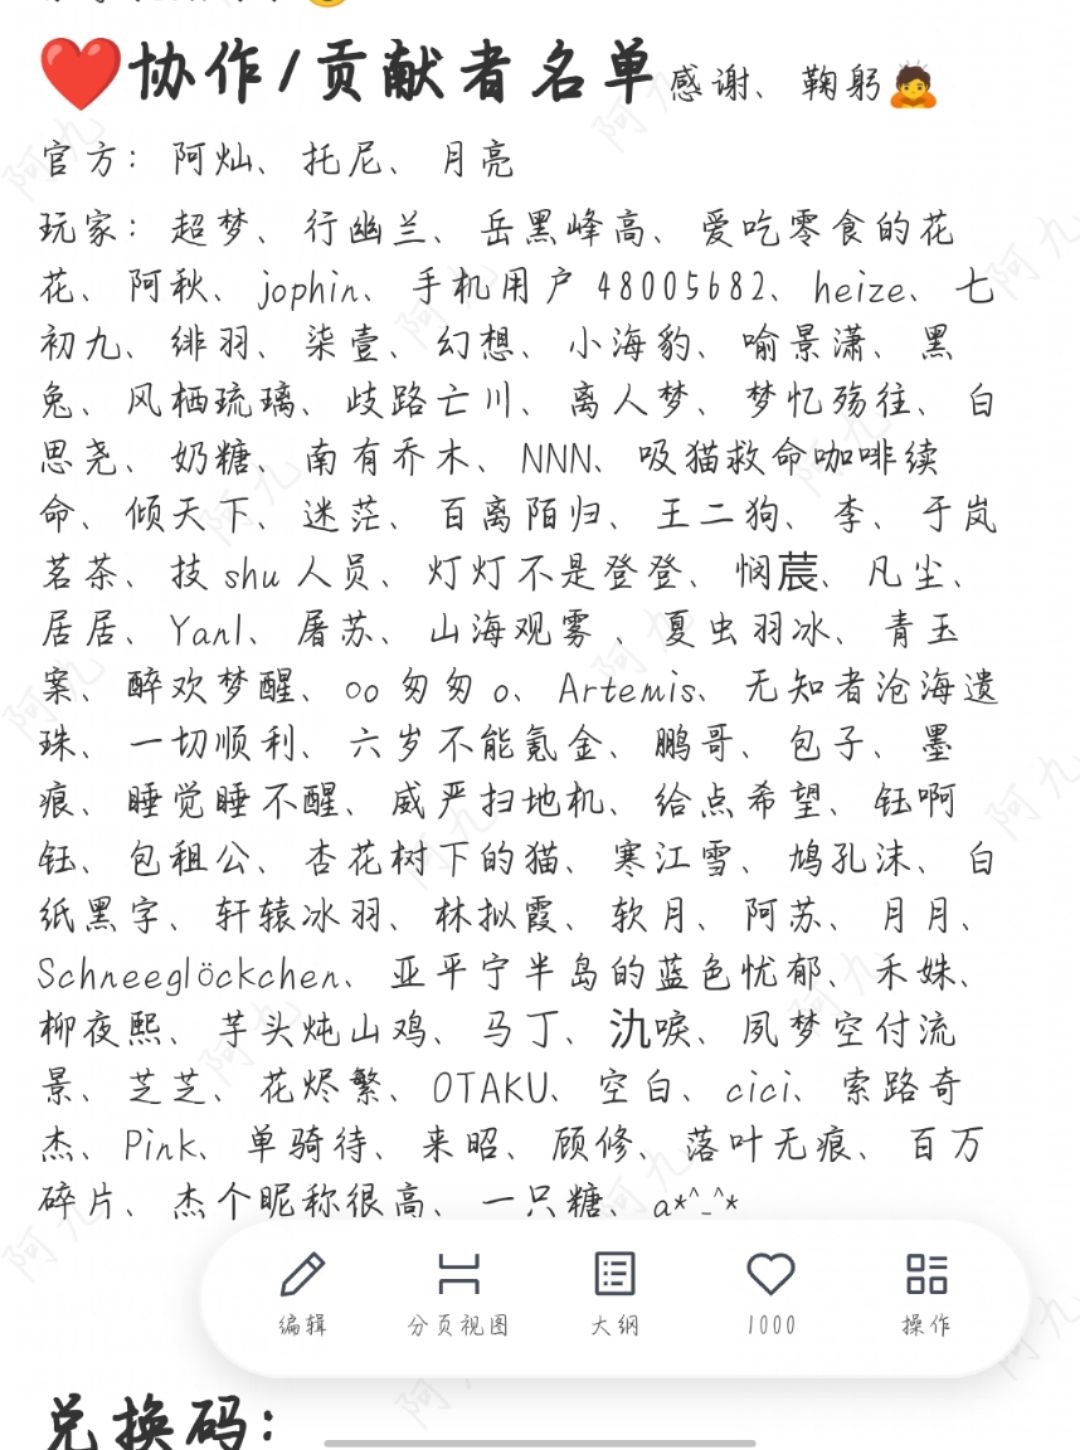 ❤️协作/贡献者名单感谢、鞠躬🙇
官方：阿灿、托尼、月亮
玩家：超梦、行幽兰、岳黑峰高、爱吃零食的花
花、阿秋、jophin、手机用户48005682、heize、七
初九、绯羽、柒壹、幻想、小海豹、喻景潇、黑
兔、风栖琉璃、歧路亡川、离人梦、梦忆殇往、白
思尧、奶糖、南有乔木、NNN、吸猫救命咖啡续
命、倾天下、迷茫、百离陌归、王二狗、李、于岚
茗茶、技shu人员、灯灯不是登登、悯莀、凡尘、
居居、Yanl、屠苏、山海观雾 、夏虫羽冰、青玉
案、醉欢梦醒、○o匆匆o、Artemis、无知者沧海遗
珠、一切顺利、六岁不能氪金、鹏哥、包子、墨
痕、睡觉睡不醒、威严扫地机、给点希望、钰啊
钰、包租公、杏花树下的猫、寒江雪、鸠孔沫、白
纸黑字、轩辕冰羽、林拟霞、软月、阿苏、月月、
Schneeglöckchen、亚平宁半岛的蓝色忧郁、禾姝、
柳夜熙、芋头炖山鸡、马丁、氿唳、夙梦空付流
景、芝芝、花烬繁、OTAKU、空白、cici、索路奇
杰、Pink、单骑待、来昭、顾修、落叶无痕、百万
碎片、杰个昵称很高、一只糖、a*^_^*
编辑 分页视图 大纲 1000 操作
兑换码：
阿九